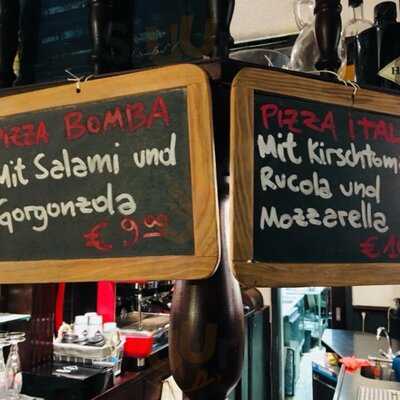 PIZZA BOMBA
Mit Salami und
Gorgonzola
€ 9.00
PIZZA iTAL
Mit Kirschtom
Rucola und
Mozzarella
€ 1